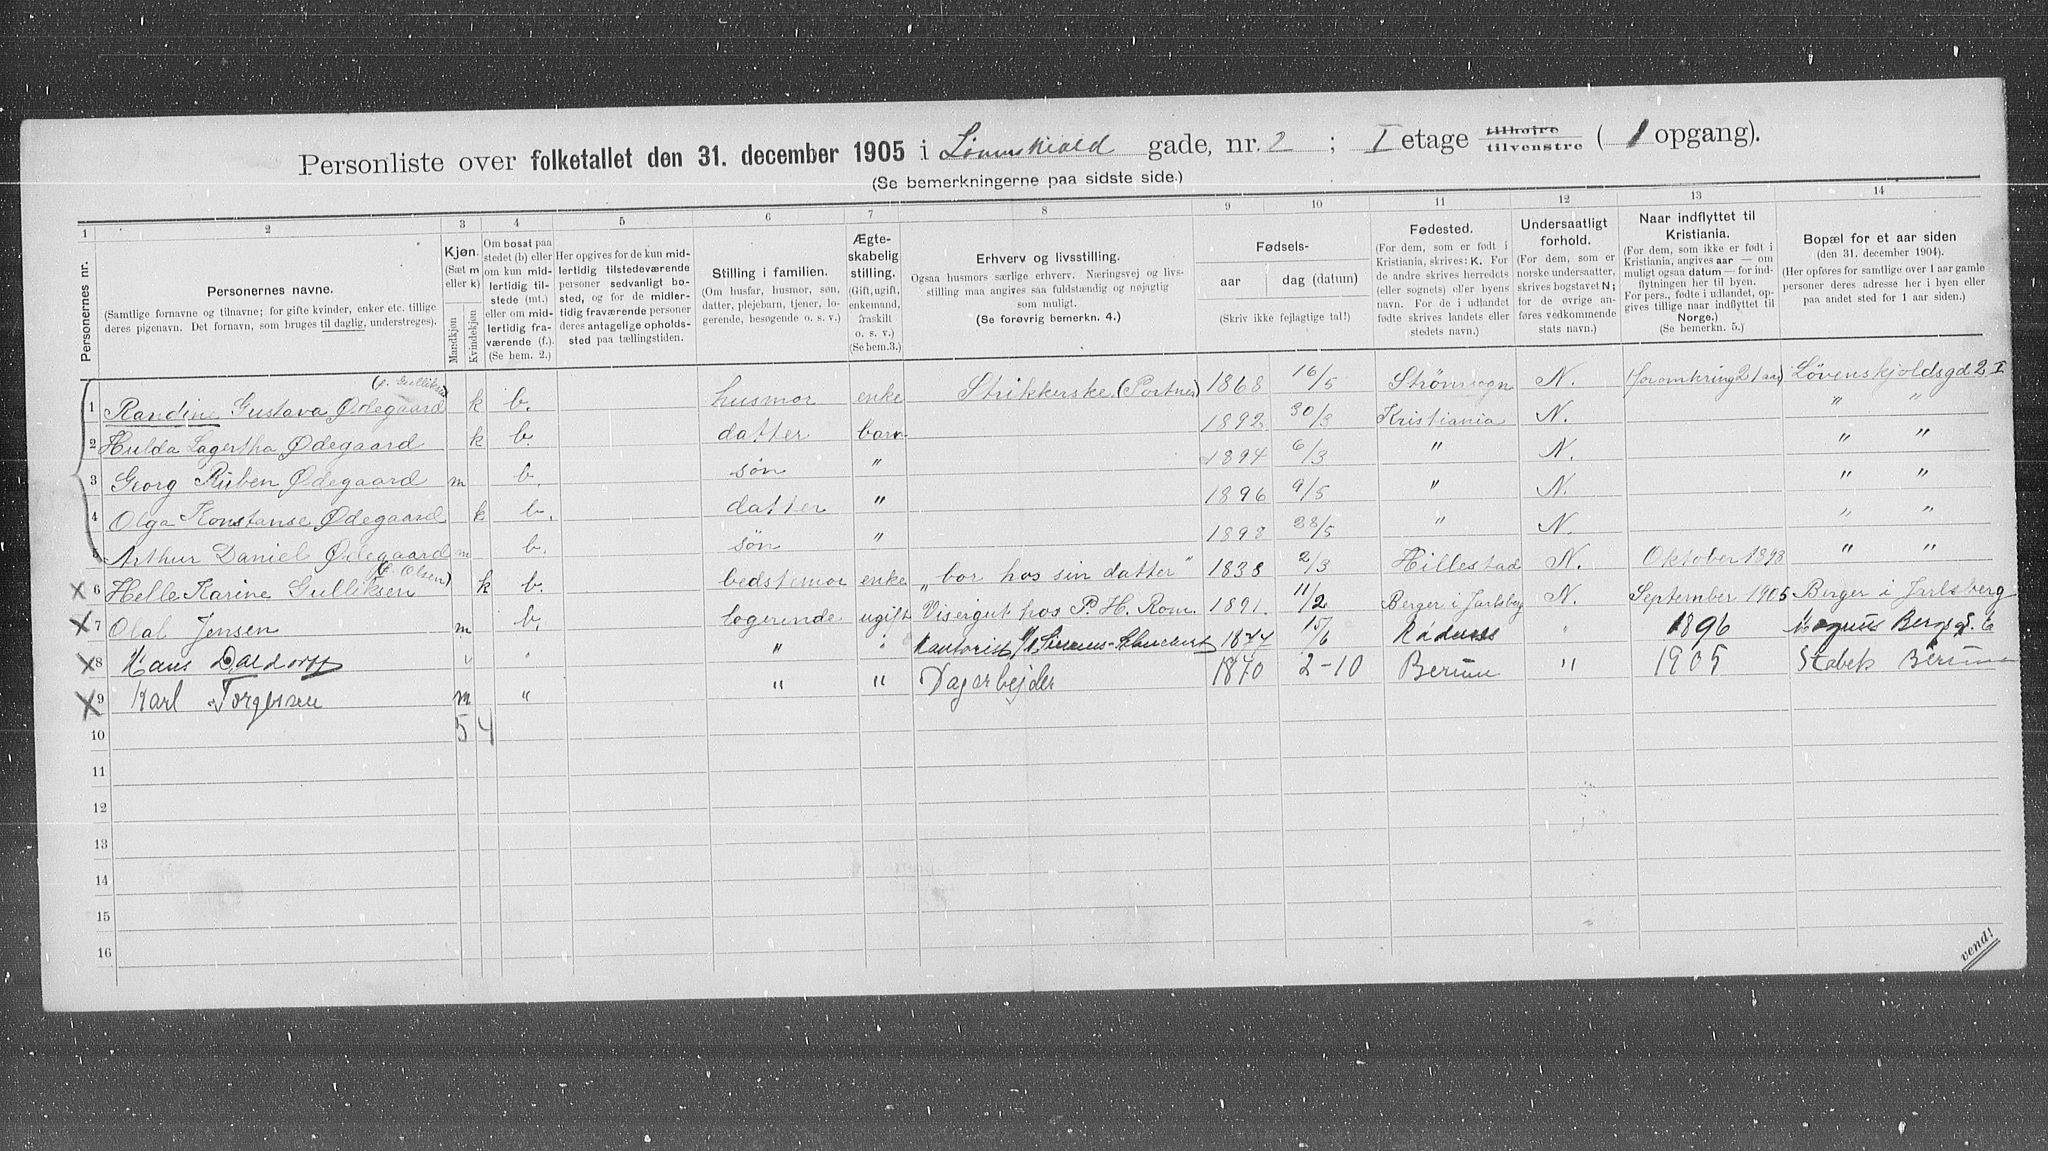 Personliste over folketallet den 31. december 1905 i Løvenskiold gade, nr. 2 ; I etage tilhøjre tilvenstre ( 1 opgang).
(Se bemerkningerne paa sidste side.)
1 2 3 4 5 6 7 8 9 10 11 12 13 14
Personernes nr.
Personernes navne.
(Samtlige fornavne og tilnavne; for gifte kvinder, enker etc. tillige deres pigenavn. Det fornavn, som bruges til daglig, understreges).
Kjøn.
(Sæt m eller k)
Mandkjøn
Kvindekjøn
Om bosat paa stedet (b) eller om kun midlertidig tilstede (mt.) eller om midlertidig fraværende (f.) (Se bem. 2.)
Her opgives for de kun midlertidig tilstedeværende personer sedvanligt bosted, og for de midlertidig fraværende personer deres antagelige opholdssted paa tællingstiden.
Stilling i familien.
(Om husfar, husmor, søn, datter, plejebarn, tjener, logerende, besøgende o. s. v.)
Ægteskabelig stilling.
(Gift, ugift, enkemand, fraskilt o. s. v.) (Se bem.3.)
Erhverv og livsstilling.
Ogsaa husmors særlige erhverv. Næringsvej og livsstilling maa angives saa fuldstændig og nøjagtig som muligt.
(Se forøvrig bemerkn. 4.)
Fødsels-
aar dag (datum)
(Skriv ikke fejlagtige tal!)
Fødested.
(For dem, som er født i Kristiania, skrives: K. For de andre skrives herredets (eller sognets) eller byens navn. For de i udlandet fødte skrives landets eller stedets navn.)
Undersaatligt forhold.
(For dem, som er norske undersaatter, skrives bogstavet N; for de øvrige anføres vedkommende stats navn.)
Naar indflyttet til Kristiania.
(For dem, som ikke er født i Kristiania, angives aar — om muligt ogsaa datum — for indflytningen her til byen. For pers., fødte i udlandet, opgives tillige naar indflyttet til Norge.)
(Se bemerkn. 5.)
Bopæl for et aar siden
(den 31. december 1904).
(Her opføres for samtlige over 1 aar gamle personer deres adresse her i byen eller paa andet sted for 1 aar siden.)
1 Randine Gustava Ødegaard (f. Gulliksen) k b. husmor enke Strikkerske (Portner) 1868 16/5 Strømsogn N. for omkring 21 aar Løvenskjoldsgd 2 I
2 Hulda Lagertha Ødegaard k b. datter barn 1892 30/3 Kristiania N. " "
3 Georg Ruben Ødegaard m b. søn " 1894 6/3 " N. " "
4 Olga Konstanse Ødegaard k b. datter " 1896 9/5 " N. " "
5 Arthur Daniel Ødegaard m b. søn " 1898 28/5 " N. " "
6 Helle Karine Gulliksen (f. Olsen) k b. bedstemor enke „bor hos sin datter" 1838 2/3 Hillestad N. Oktober 1898 " "
7 Olal Jensen m b. logerende ugift Visergut hos P. H. Rom. 1891. 11/2 Berger i Jarlsberg N. September 1905 Berger i Jarlsberg
8 Hans Daldorff " " " " Kontorist 1877 15/6 " 1896 Magnus Bergsg.
9 Karl Torgersen m " " " Dagarbejder 1870 2-10 Berum " 1905 Stabek Berum
10 5 4
11
12
13
14
15
16
vend!